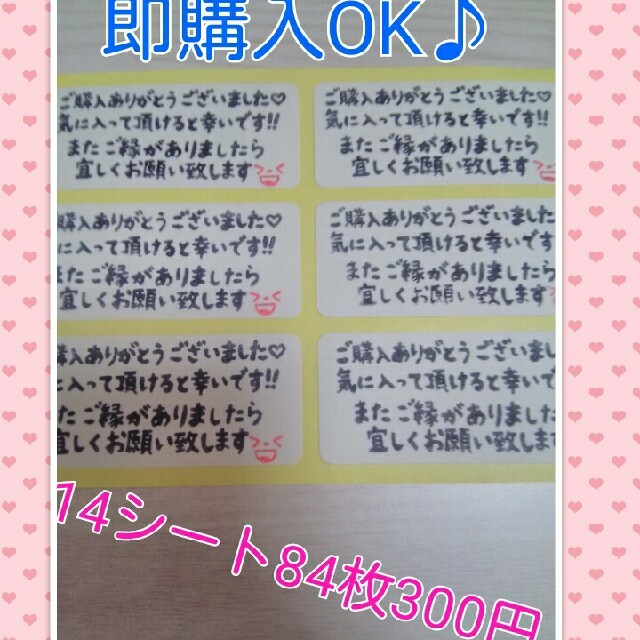 即購入OK♪
ご購入ありがとうございました♡
気に入って頂けると幸いです!!
またご縁がありましたら
宜しくお願い致します
ご購入ありがとうございました♡
気に入って頂けると幸いです!!
またご縁がありましたら
宜しくお願い致します
購入ありがとうございました♡
に入って頂けると幸いです!!
またご縁がありましたら
宜しくお願い致します
ご購入ありがとうございました
気に入って頂けると幸いです
またご縁がありましたら
宜しくお願い致します
購入ありがとうございました♡
に入って頂けると幸いです!!
たご縁がありましたら
宜しくお願い致します
ご購入ありがとうございまし
気に入って頂けると幸いで
またご縁がありましたら
宜しくお願い致します
14シート84枚300円